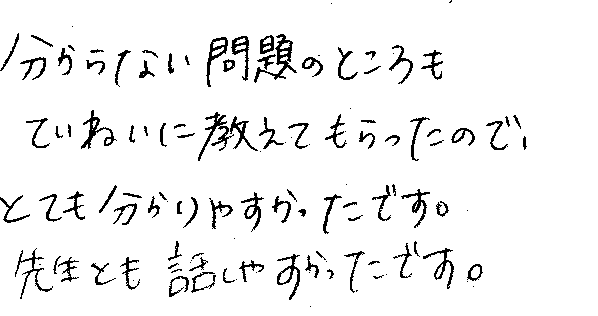 分からない問題のところも
ていねいに教えてもらったので、
とても分かりやすかったです。
先生とも話しやすかったです。